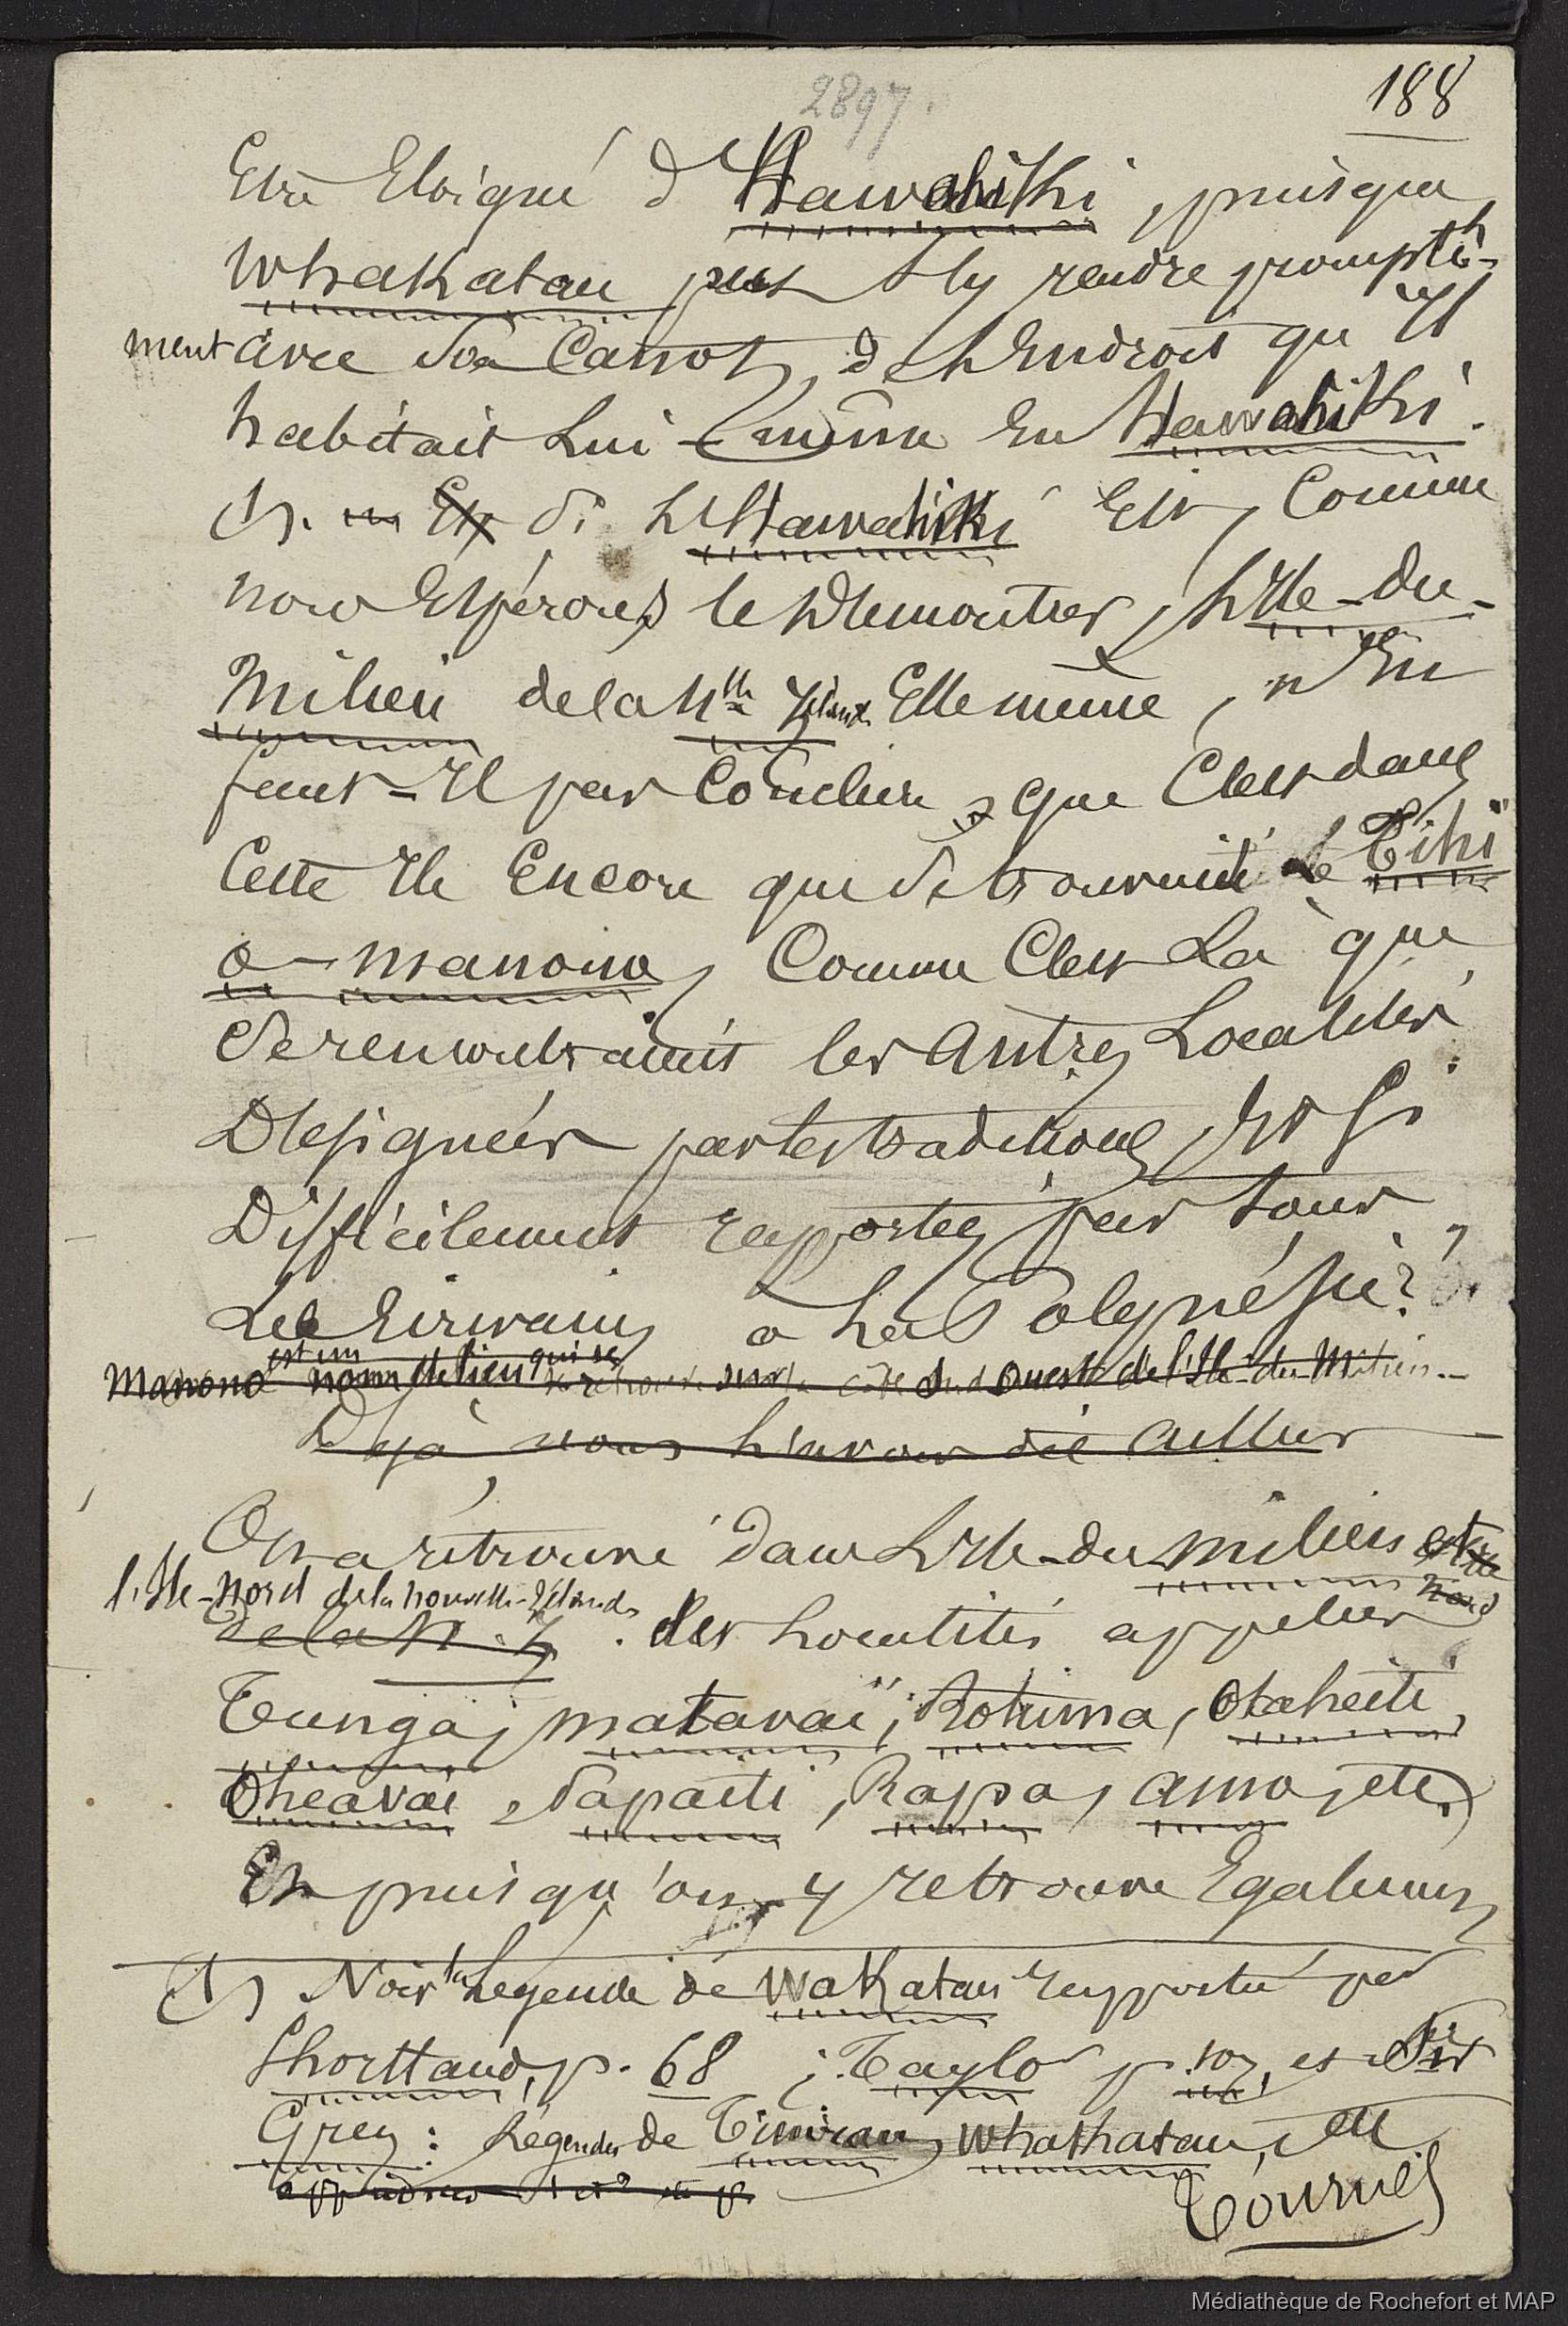 2897.
188
Etre Eloigné d'Hawahiki, puisque
Whakatau put s'y rendre prompte-
ment avec son Canot, de l'Endroit qu'il
habitait lui-même en Hawahiki.
(1). Si l'Hawahiki Est, Comme
nous Espérons le Démontrer, l'Ile-du-
Milieu de la Nlle Zélande Elle même, n'En
faut-Il pas Conclure, que C'est dans
Cette Ile Encore que se trouvait le Tihi
o-manono, Comme C'est Là que
Se rencontraient les Autres Localités
Désignées par les traditions, Et si
Difficilement rapportées par tous
Les Ecrivains à La Polynésie?
Manono est un nom de lieu qui se retrouve sur la côte Sud Ouest de l'Ile-du-Milieu.-
Déjà nous l'avons dit ailleurs
On a retrouvé dans L'Ile-du-milieu et
l'Ile-Nord de la nouvelle-Zélande
de la N. Z. des Localités appelées
Tunga, matavaï, Rotuma, Otaheiti,
Oheavai, Sapaïti, Rapa, ama, etc.)
Et puisqu'on y retrouve Egalement
(1) Voir la Légende de Wakatau rapportée par
Shorttand, p. 68; Taylor p. 107, et Sir
Grey: Légendes de Tinirau, Whathatau, etc
Tournés